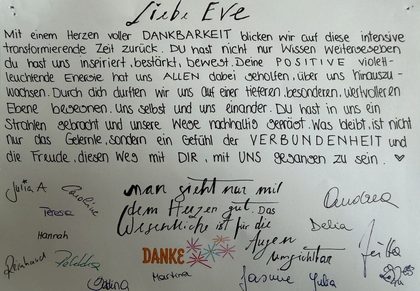 Liebe Eve
Mit einem Herzen voller DANKBARKEIT blicken wir auf diese intensive
transformierende Zeit zurück. Du hast nicht nur Wissen weitergegeben
du hast uns inspiriert, bestärkt, bewegt. Deine POSITIVE violett-
leuchtende Energie hat uns ALLEN dabei geholfen, über uns hinauszu-
wachsen. Durch dich durften wir uns auf einer tieferen, besonderen, wertvolleren
Ebene begegnen. Uns selbst und uns einander. Du hast in uns ein
Strahlen gebracht und unsere Wege nachhaltig geprägt. Was bleibt, ist nicht
nur das Gelernte, sondern ein Gefühl der VERBUNDENHEIT und
die Freude, diesen Weg mit DIR, mit UNS gegangen zu sein.
Julia A Caroline man sieht nur mit Andrea
Teresa dem Herzen gut. Das
Hannah Wesentliche ist für die Delia
Reinhard DANKE Augen Jutta
unsichtbar
Martina Jasmine Julia